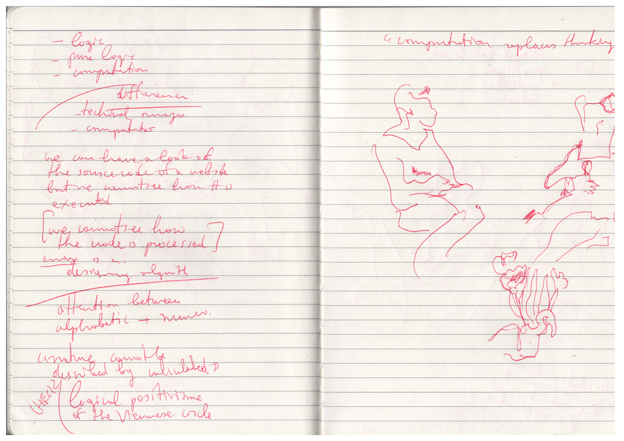 - logic
- pure logic
- computation
difference
- technical images
- computation
we can have a look at
the source code of a website
but we cannot see how it is
executed
[we cannot see how
the code is processed]
image is a
between
alphabetic +
cannot be
described by calculated"
logical positivisme
of the Viennese circle
"computation replaces thinking